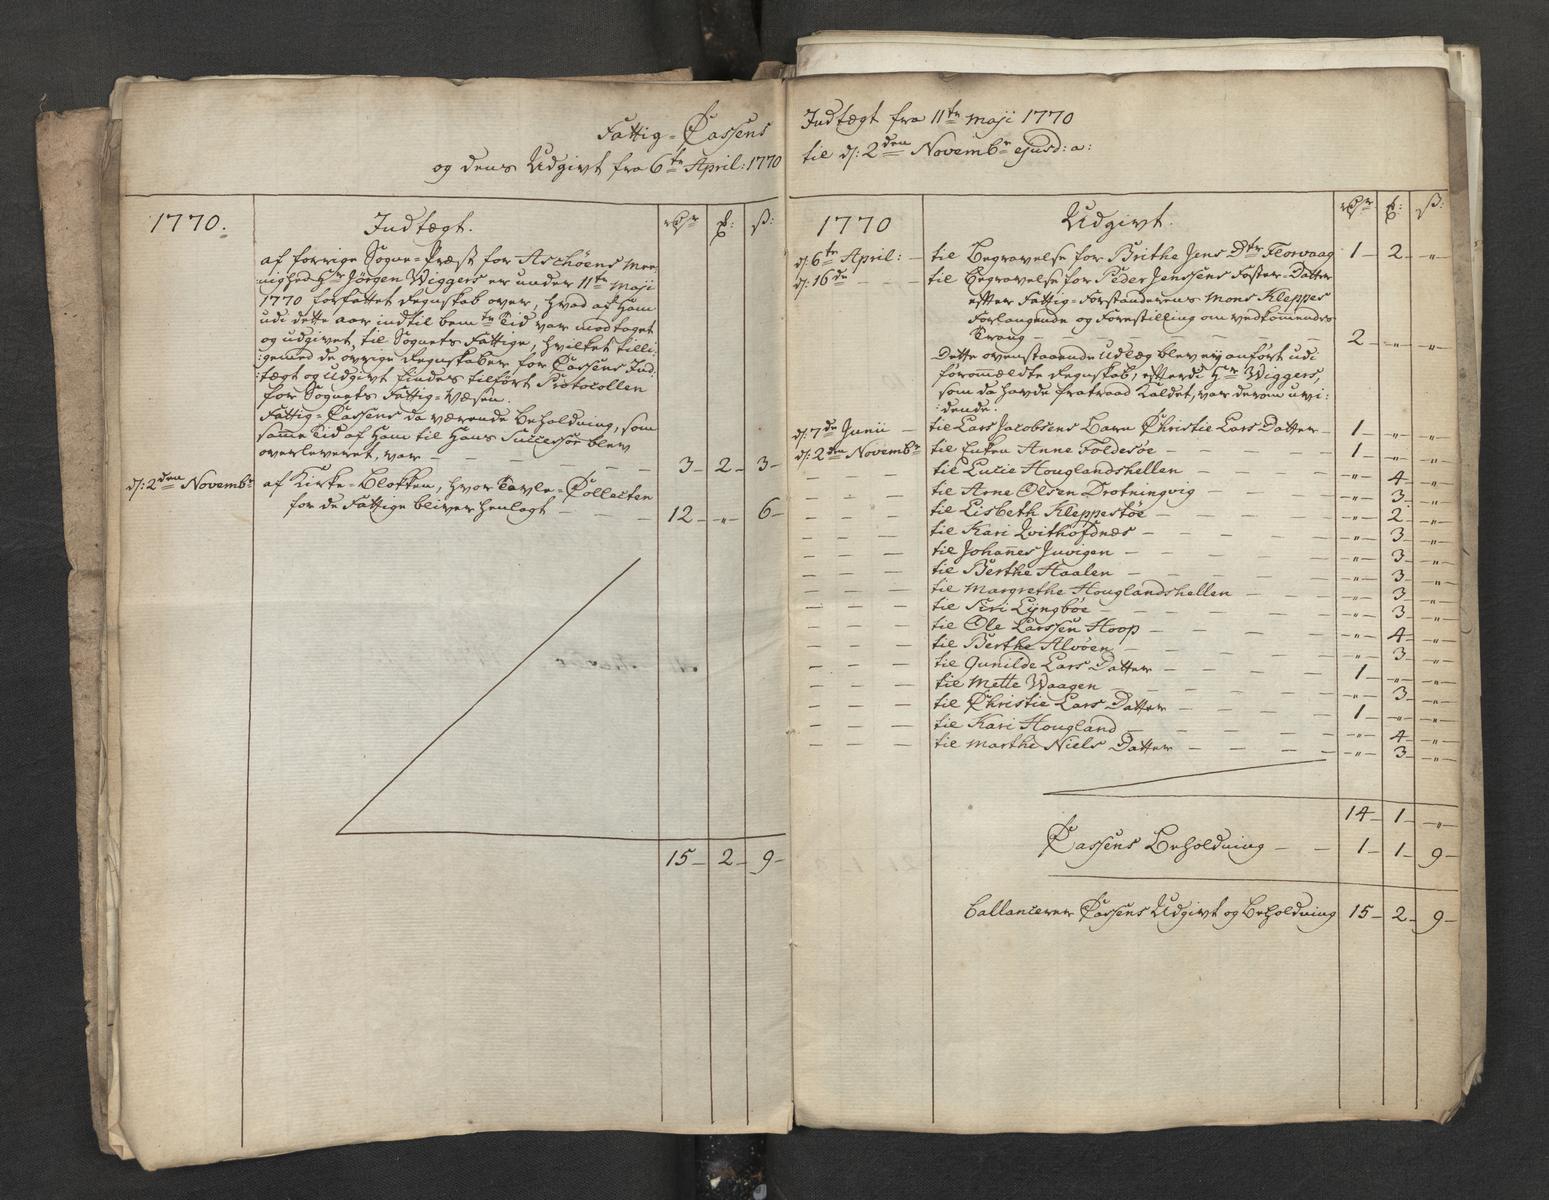 Fattig-Cassens
og dens Udgivt fra 6te April: 1770
1770.
Indtægt.
Rdr
ß:
af forrige Sogne-Præst for Aschøens Me-
nighed Hr Jørgen Wiggers er under 11te Maji
1770 forfattet Regnskab over, hvad af ham
udi dette aar indtil bemte Tid var modtaget
og udgivet, til Sognets Fattige, hvilket tilli-
:gemed de øvrige Regnskaber for Cassens Ind-
:tægt og Udgivt findes tilført Protocollen
for Sognets Fattig-Væsen.
Fattig-Cassens da værende Beholdning, som
samme Tid af ham til hans Successor blev
overleveret, var — — — — — 3 — 2 — 3 —
d: 2den Novembr af Kirke-Blokken, hvor Tavle-Collecten
for de Fattige bliver henlagt — — — 12 — „ — 6 —
15 — 2 — 9 —
Indtægt fra 11te Maji 1770
til d: 2den Novembr ejusd: a:
1770
Udgivt.
Rdr
ß:
d: 6te April: — til Begravelse for Brithe Jens Dtr Florvaag 1 — 2 — „ —
d: 16de — — til Begravelse for Peder Jenssens Foster-Datter
efter Fattig-Forstanderens Mons Kleppes
Forlangende og Forestilling om vedkommendes
Trang — — — 2 — „ — „ —
Dette ovenstaaende Udlæg blev ej anført udi
førommældte Regnskab, efterdi Hr Wiggers,
som da havde fratraad Kaldet, var derom uvi-
:dende.
d: 7de Junii — til Lars Jacobsens Barn Christie Lars Datter — 1 — „ — „ —
d: 2den Novembr til Enken Anne Foldesøe — — — 1 — „ — „ —
— — — til Lucie Houglandshellen — — — „ — 4 — „ —
— — — til Arne Olsen Drotningvig — — — „ — 3 — „ —
— — — til Lisbeth Kleppestøe — — — „ — 2 — „ —
— — — til Kari Qvithofdnæs — — — „ — 3 — „ —
— — — til Johanes Juvigen — — — „ — 3 — „ —
— — — til Berthe Haalen — — — „ — 3 — „ —
— — — til Margrethe Houglandshellen — — — „ — 3 — „ —
— — — til Siri Lyngbøe — — — „ — 3 — „ —
— — — til Ole Larssen Hoop — — — „ — 4 — „ —
— — — til Berthe Alvøen — — — „ — 3 — „ —
— — — til Gunilde Lars Datter — — — 1 — „ — „ —
— — — til Mette Waagen — — — „ — 3 — „ —
— — — til Christie Lars Datter — — — 1 — „ — „ —
— — — til Kari Hougland — — — „ — 4 — „ —
— — — til Marthe Niels Datter — — — „ — 3 — „ —
14 — 1 — „ —
Cassens Beholdning — — 1 — 1 — 9 —
Ballancerer Cassens Udgivt og Beholdning 15 — 2 — 9 —